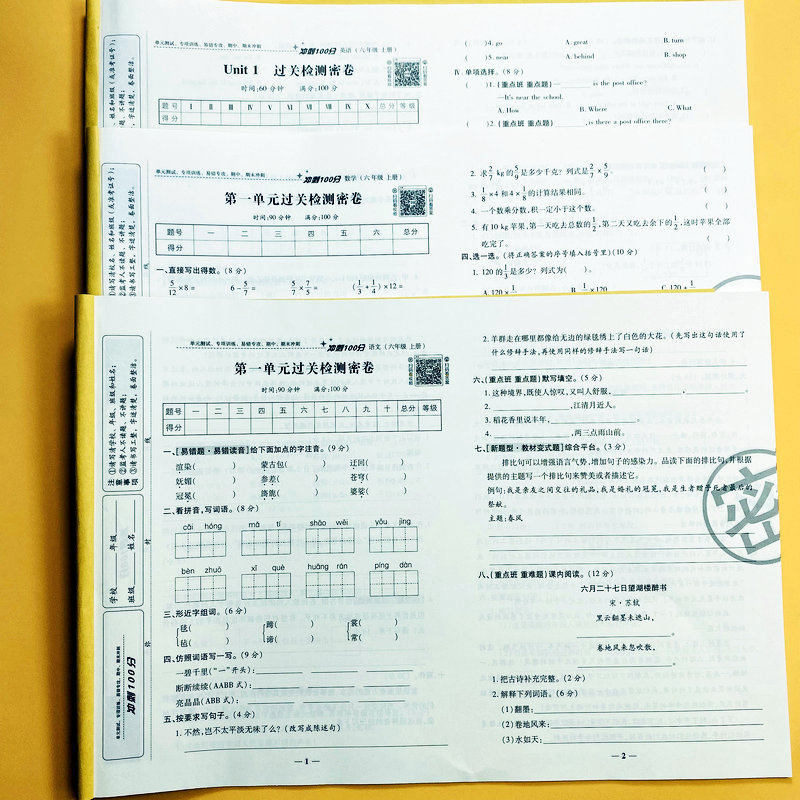 单元测试、专项训练、易错专攻、期中、期末冲刺
冲刺100分 英语（六年级 上册）
Unit 1 过关检测密卷
时间:60分钟 满分:100分
题号 Ⅰ Ⅱ Ⅲ Ⅳ Ⅴ Ⅵ Ⅶ Ⅷ Ⅸ Ⅹ 总分 等级
得分
( )4. go A. great B. turn
( )5. near A. behind B. shop
Ⅳ. 单项选择。(8分)
( )1. (重点班 重点题) — is the post office?
—It's near the school.
A. How B. Where C. What
( )2. (重点班 重点题) , is there a post office there?
单元测试、专项训练、易错专攻、期中、期末冲刺
冲刺100分 数学（六年级 上册）
第一单元过关检测密卷
时间:90分钟 满分:100分
题号 一 二 三 四 五 六 总分
得分
一、直接写出得数。(8分)
5/12×8= 6-5/7= 5/7×7/5= (1/3+1/4)×12=
2. 求2/7 kg的5/9是多少千克？列式是2/7×5/9。 ( )
3. 1/8×4和4×1/8的计算结果相同。 ( )
4. 一个数乘分数,积一定小于这个数。 ( )
5. 有10 kg苹果,第一天吃去总数的1/2,第二天又吃去余下的1/2,这时苹果全部
吃完了。 ( )
四、选一选。(将正确答案的序号填入括号里)(10分)
1. 120的1/3是多少？列式为( )。
单元测试、专项训练、易错专攻、期中、期末冲刺
冲刺100分 语文（六年级 上册）
第一单元过关检测密卷
时间:90分钟 满分:100分
题号 一 二 三 四 五 六 七 八 九 十 总分 等级
得分
一、[易错题·易错读音]给下面加点的字注音。(9分)
渲染( ) 蒙古包( ) 迂回( )
妩媚( ) 参差( ) 苍穹( )
冠冕( ) 旖旎( ) 婆娑( )
二、看拼音,写词语。(8分)
cǎi hóng mǎ tí shāo wēi yōu jìng
bèn zhuō xǐ què huǎng rán píng dàn
三、形近字组词。(6分)
毯( ) 蹄( ) 裳( )
毡( ) 谛( ) 常( )
四、仿照词语写一写。(9分)
一碧千里("一"开头):
断断续续(AABB式):
亮晶晶(ABB式):
五、按要求写句子。(4分)
1. 不然,岂不太平淡无味了么？(改写成陈述句)
— 1 —
2. 羊群走在哪里都像给无边的绿毯绣上了白色的大花。(先写出这句话使用了
什么修辞手法,再使用同样的修辞手法写一句话)
六、(重点班 重点题)默写填空。(5分)
1. 这种境界,既使人惊叹,又叫人舒服, , 。
2. ,江清月近人。
3. 稻花香里说丰年, 。
4. ,两三点雨山前。
七、[新题型·教材变式题]综合平台。(3分)
排比句可以增强语言气势,增加句子的感染力。品读下面的排比句,并根据
提供的主题写一个排比句来赞美或者描述它。
例句:我是亲友之间交往的礼品,我是婚礼的冠冕,我是生者赠予死者最后的
祭献。
主题:春风
八、(重点班 重难题)课内阅读。(12分)
六月二十七日望湖楼醉书
宋·苏轼
黑云翻墨未遮山,
。
卷地风来忽吹散,
。
1. 把古诗补充完整。(2分)
2. 解释下列词语。(6分)
(1)翻墨:
(2)卷地风来:
(3)水如天:
— 2 —
注意事项
①请写清学校、年级、班级和姓名;
②监考人不读题、不讲题;
③请书写工整、字迹清楚,卷面整洁。
学校 年级
班级 姓名
冲刺100分
单元测试、专项训练、易错专攻、期中、期末冲刺
线
封
密